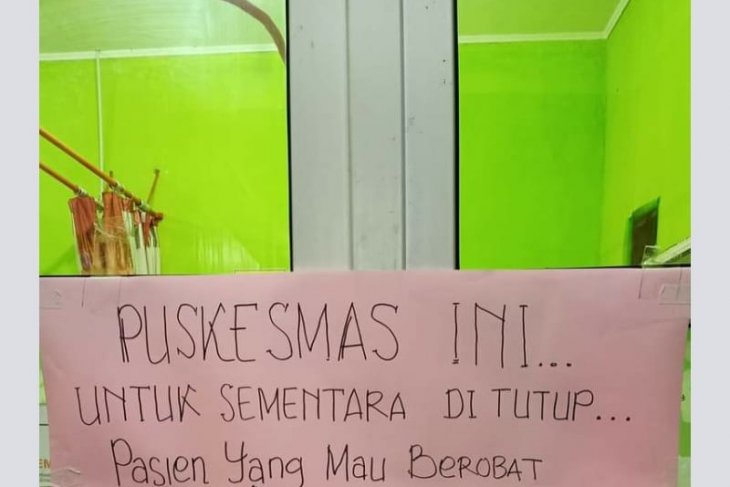 PUSKESMAS INI...
UNTUK SEMENTARA DI TUTUP...
Pasien Yang Mau BEROBAT